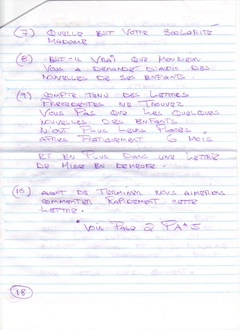 (7) QUELLE EST VOTRE SCOLARITÉ
MADAME
(8) EST-IL VRAI QUE MONSIEUR
VOUS A DEMANDÉ D'AVOIR DES
NOUVELLES DE SES ENFANTS.
(9) COMPTE TENU DES LETTRES
PRÉCÉDENTES NE TROUVEZ
VOUS PAS QUE LES QUELQUES
NOUVELLES DES ENFANTS
N'ONT PLUS LEURS PLACES
APRÈS 6 MOIS.
ET EN PLUS DANS UNE LETTRE
DE MISE EN DEMEURE.
(10) AVANT DE TERMINER NOUS AIMERIONS
COMMENTER RAPIDEMENT CETTE
LETTRE.
VOIR PAGE 2 PA
18